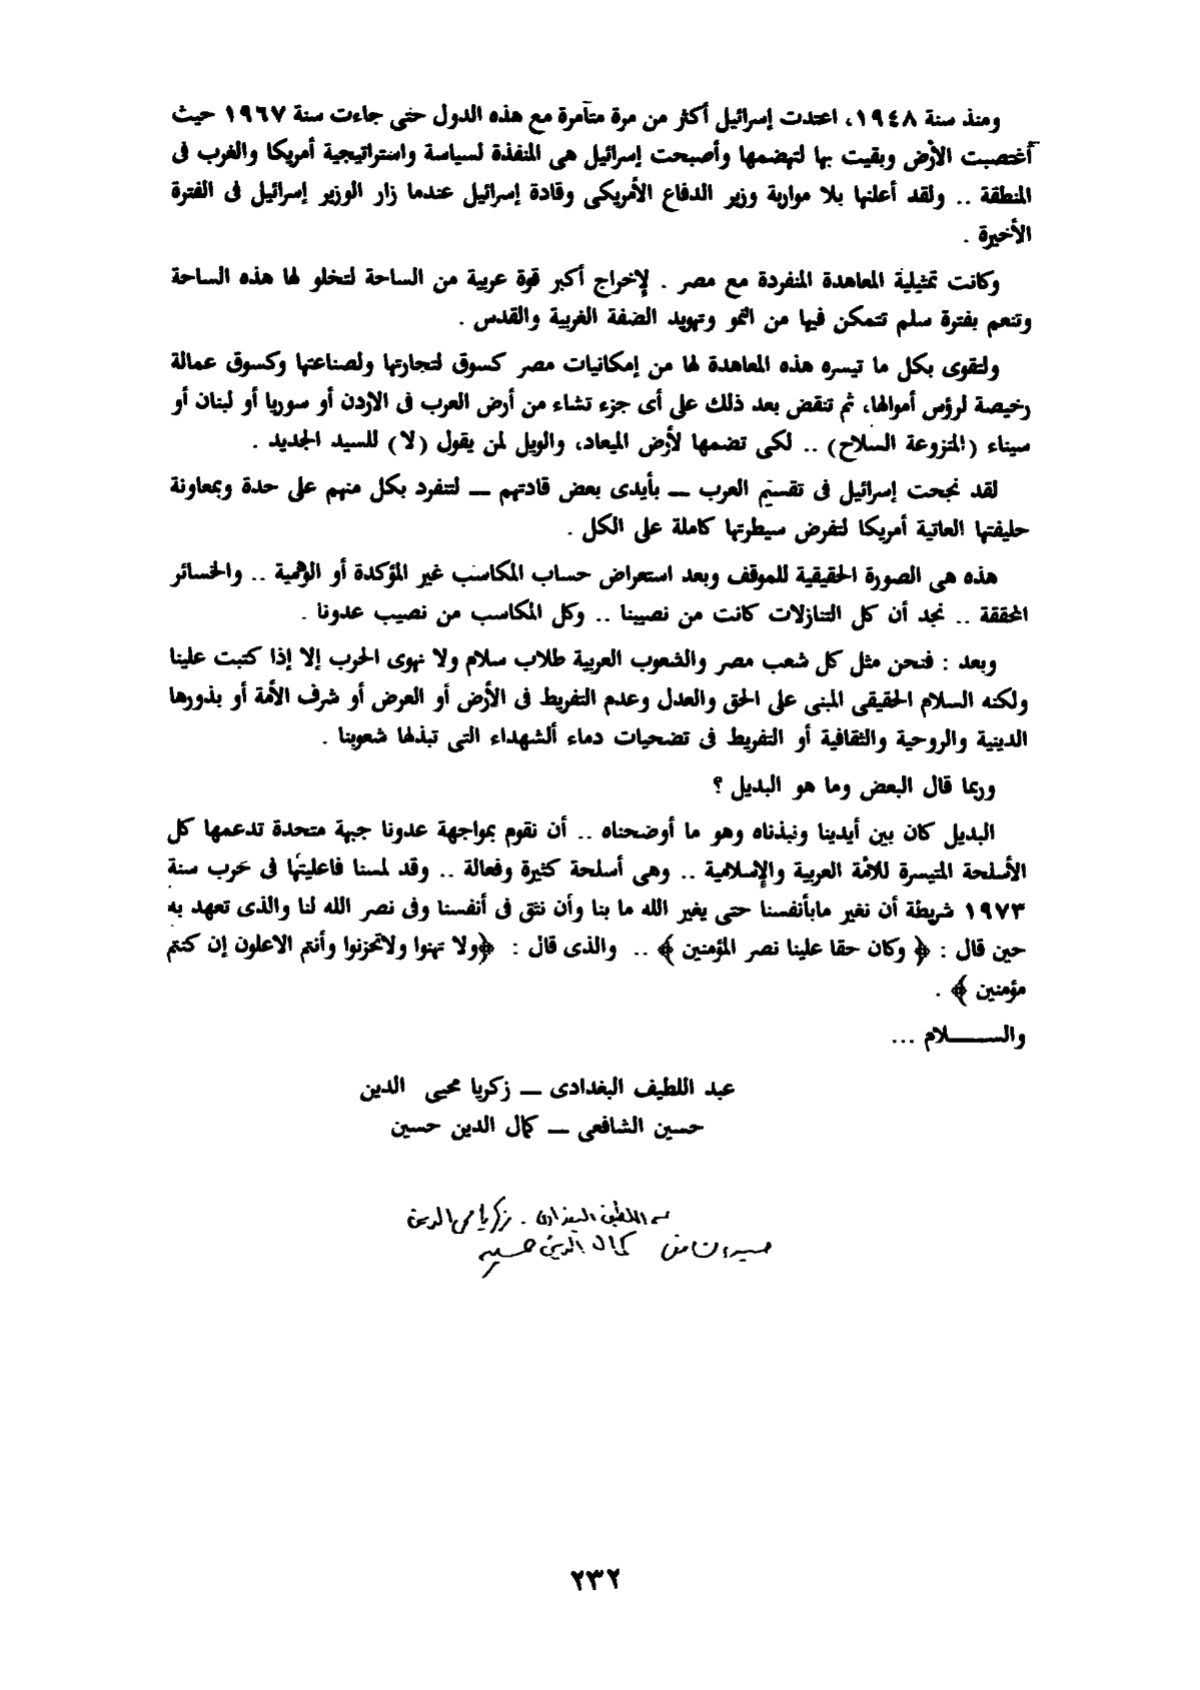 ومنذ سنة ١٩٤٨، اعتدت إسرائيل أكثر من مرة متآمرة مع هذه الدول حتى جاءت سنة ١٩٦٧ حيث
أغتصبت الأرض وبقيت بها لتهضمها وأصبحت إسرائيل هى المنفذة لسياسة واستراتيجية أمريكا والغرب فى
المنطقة .. ولقد أعلنها بلا مواربة وزير الدفاع الأمريكى وقادة إسرائيل عندما زار الوزير إسرائيل فى الفترة
الأخيرة .
وكانت تمثيلية المعاهدة المنفردة مع مصر . لإخراج أكبر قوة عربية من الساحة لتخلو لها هذه الساحة
وتنعم بفترة سلم تتمكن فيها من النمو وتهويد الضفة الغربية والقدس .
ولتقوى بكل ما تيسره هذه المعاهدة لها من إمكانيات مصر كسوق لتجارتها ولصناعتها وكسوق عمالة
رخيصة لرؤس أموالها، ثم تنقض بعد ذلك على أى جزء تشاء من أرض العرب فى الاردن أو سوريا أو لبنان أو
سيناء (المنزوعة السلاح) .. لكى تضمها لأرض الميعاد، والويل لمن يقول (لا) للسيد الجديد .
لقد نجحت إسرائيل فى تقسيم العرب ــ بأيدى بعض قادتهم ــ لتنفرد بكل منهم على حدة وبمعاونة
حليفتها العاتية أمريكا لتفرض سيطرتها كاملة على الكل .
هذه هى الصورة الحقيقية للموقف وبعد استعراض حساب المكاسب غير المؤكدة أو الوهمية .. والخسائر
المحققة .. نجد أن كل التنازلات كانت من نصيبنا .. وكل المكاسب من نصيب عدونا .
وبعد : فنحن مثل كل شعب مصر والشعوب العربية طلاب سلام ولا نهوى الحرب إلا إذا كتبت علينا
ولكنه السلام الحقيقى المبنى على الحق والعدل وعدم التفريط فى الأرض أو العرض أو شرف الأمة أو بذورها
الدينية والروحية والثقافية أو التفريط فى تضحيات دماء ألشهداء التى تبذلها شعوبنا .
وربما قال البعض وما هو البديل ؟
البديل كان بين أيدينا ونبذناه وهو ما أوضحناه .. أن نقوم بمواجهة عدونا جبهة متحدة تدعمها كل
الأسلحة المتيسرة للأمة العربية والإسلامية .. وهى أسلحة كثيرة وفعالة .. وقد لمسنا فاعليتها فى حرب سنة
١٩٧٣ شريطة أن نغير مابأنفسنا حتى يغير الله ما بنا وأن نثق فى أنفسنا وفى نصر الله لنا والذى تعهد به
حين قال : ﴿ وكان حقا علينا نصر المؤمنين ﴾ .. والذى قال : ﴿ولا تهنوا ولاتحزنوا وأنتم الاعلون إن كنتم
مؤمنين ﴾ .
والســـــلام ...
عبد اللطيف البغدادى ــ زكريا محيى الدين
حسين الشافعى ــ كمال الدين حسين
عبد اللطيف البغدادى . زكريا محى الدين
حسين الشافعى كمال الدين حسين
٢٣٢